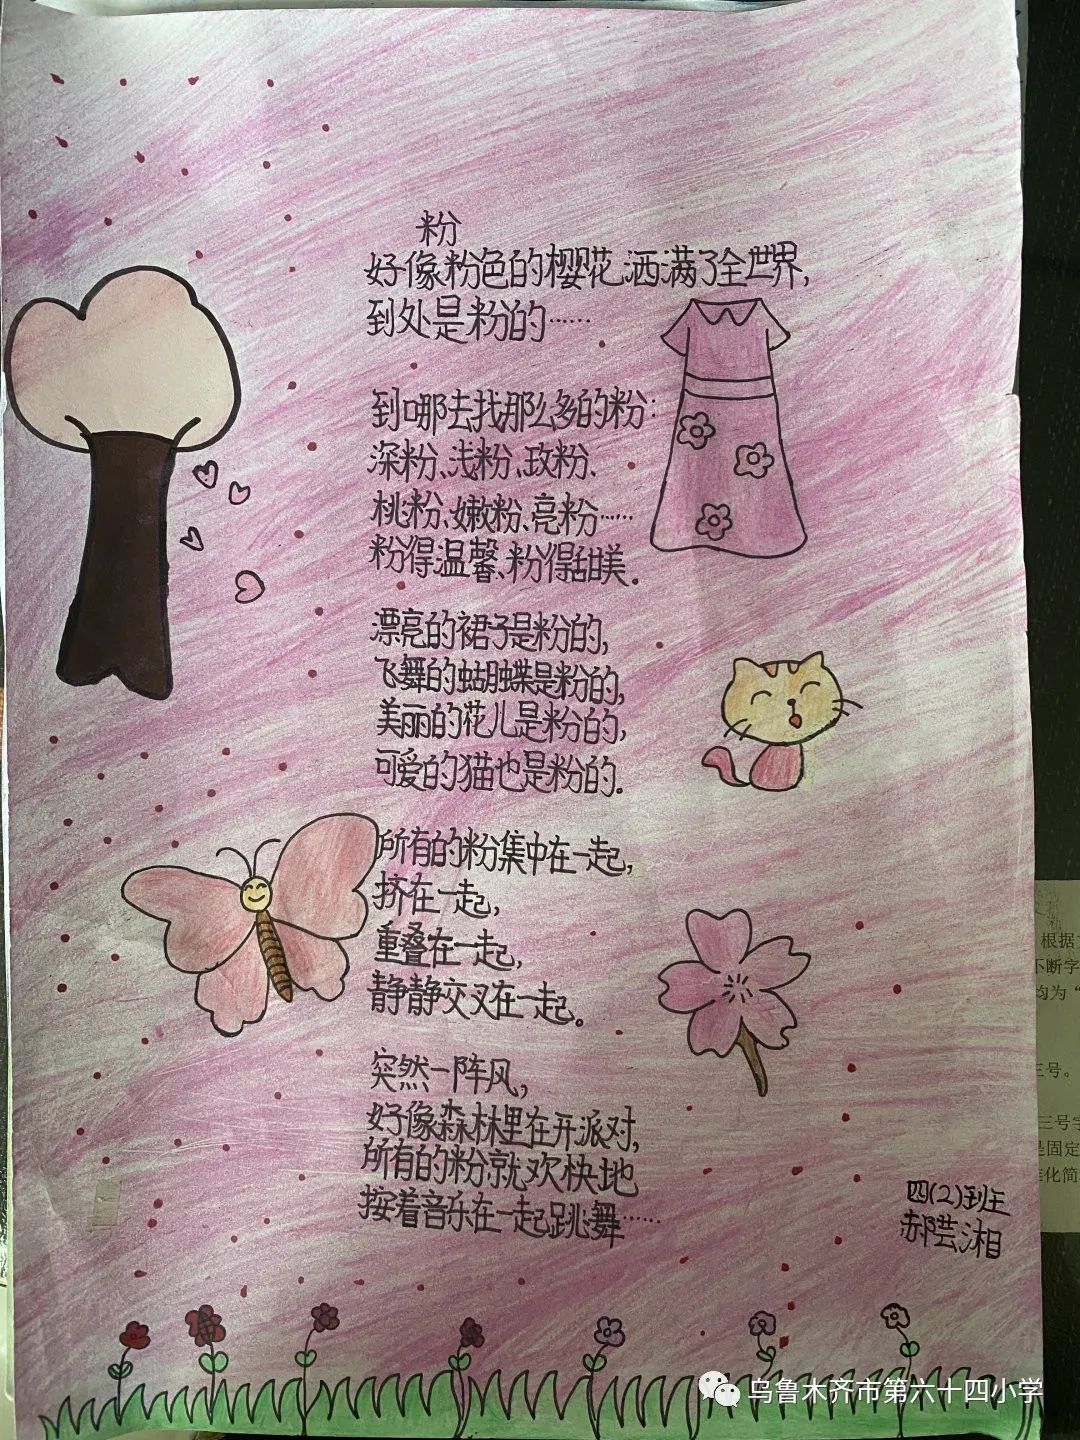 粉
好像粉色的樱花洒满了全世界,
到处是粉的……
到哪去找那么多的粉:
深粉、浅粉、玫粉、
桃粉、嫩粉、亮粉……
粉得温馨、粉得甜美。
漂亮的裙子是粉的,
飞舞的蝴蝶是粉的,
美丽的花儿是粉的,
可爱的猫也是粉的。
所有的粉集中在一起,
挤在一起,
重叠在一起,
静静交叉在一起。
突然一阵风,
好像森林里在开派对,
所有的粉就欢快地
按着音乐在一起跳舞……
四(2)班
郝芸湘
根据
不断字
均为“
三号。
三号字
是固定
乌鲁木齐市第六十四小学